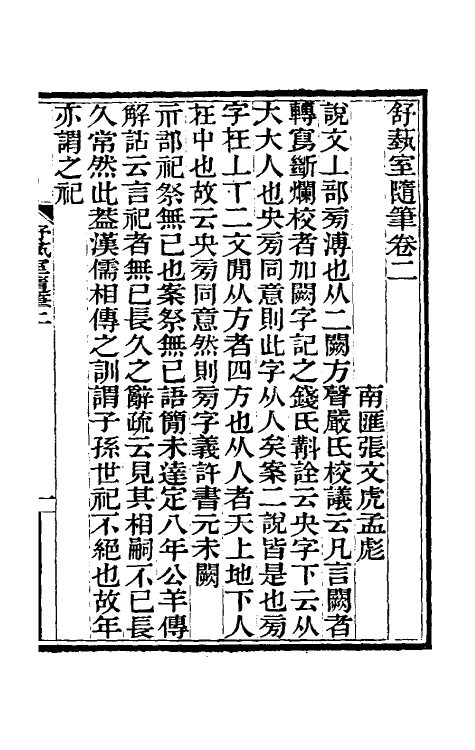 舒蓺室隨筆卷二
南匯張文虎孟彪
說文丄部㫄溥也从二闕方聲嚴氏校議云凡言闕者
轉寫斷爛校者加闕字記之錢氏斠詮云央字下云从
大大人也央㫄同意則此字从人矣案二說皆是也㫄
字在丄丅二文閒从方者四方也从人者天上地下人
在中也故云央㫄同意然則㫄字義許書元未闕
示部祀祭無已也案祭無已語簡未達定八年公羊傳
解詁云言祀者無已長久之辭疏云見其相嗣不已長
久常然此葢漢儒相傳之訓謂子孫世祀不絕也故年
亦謂之祀
舒蓺室隨筆二
一